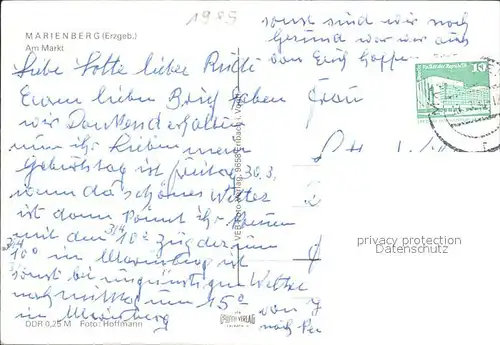 1989
MARIENBERG (Erzgeb.)
Am Markt
sonst sind wir noch
Gesund was wir auch
von Euch hoffen
Liebe Lotte lieber Rudi
Euren lieben Brief haben
wir Dankend erhalten
nun ihr Lieben mein
Geburtstag ist Freitag 30.3,
wenn da schönes Wetter
ist dann könnt ihr kommen
mit den 10° Zug der um
10° in Marienberg ist
sonst bei ungünstigen Wetter
nachmittag um 15°
in Marienberg
Frau
10
privacy protection
Datenschutz
DDR 0,25 M Foto: Hoffmann
VERLAG